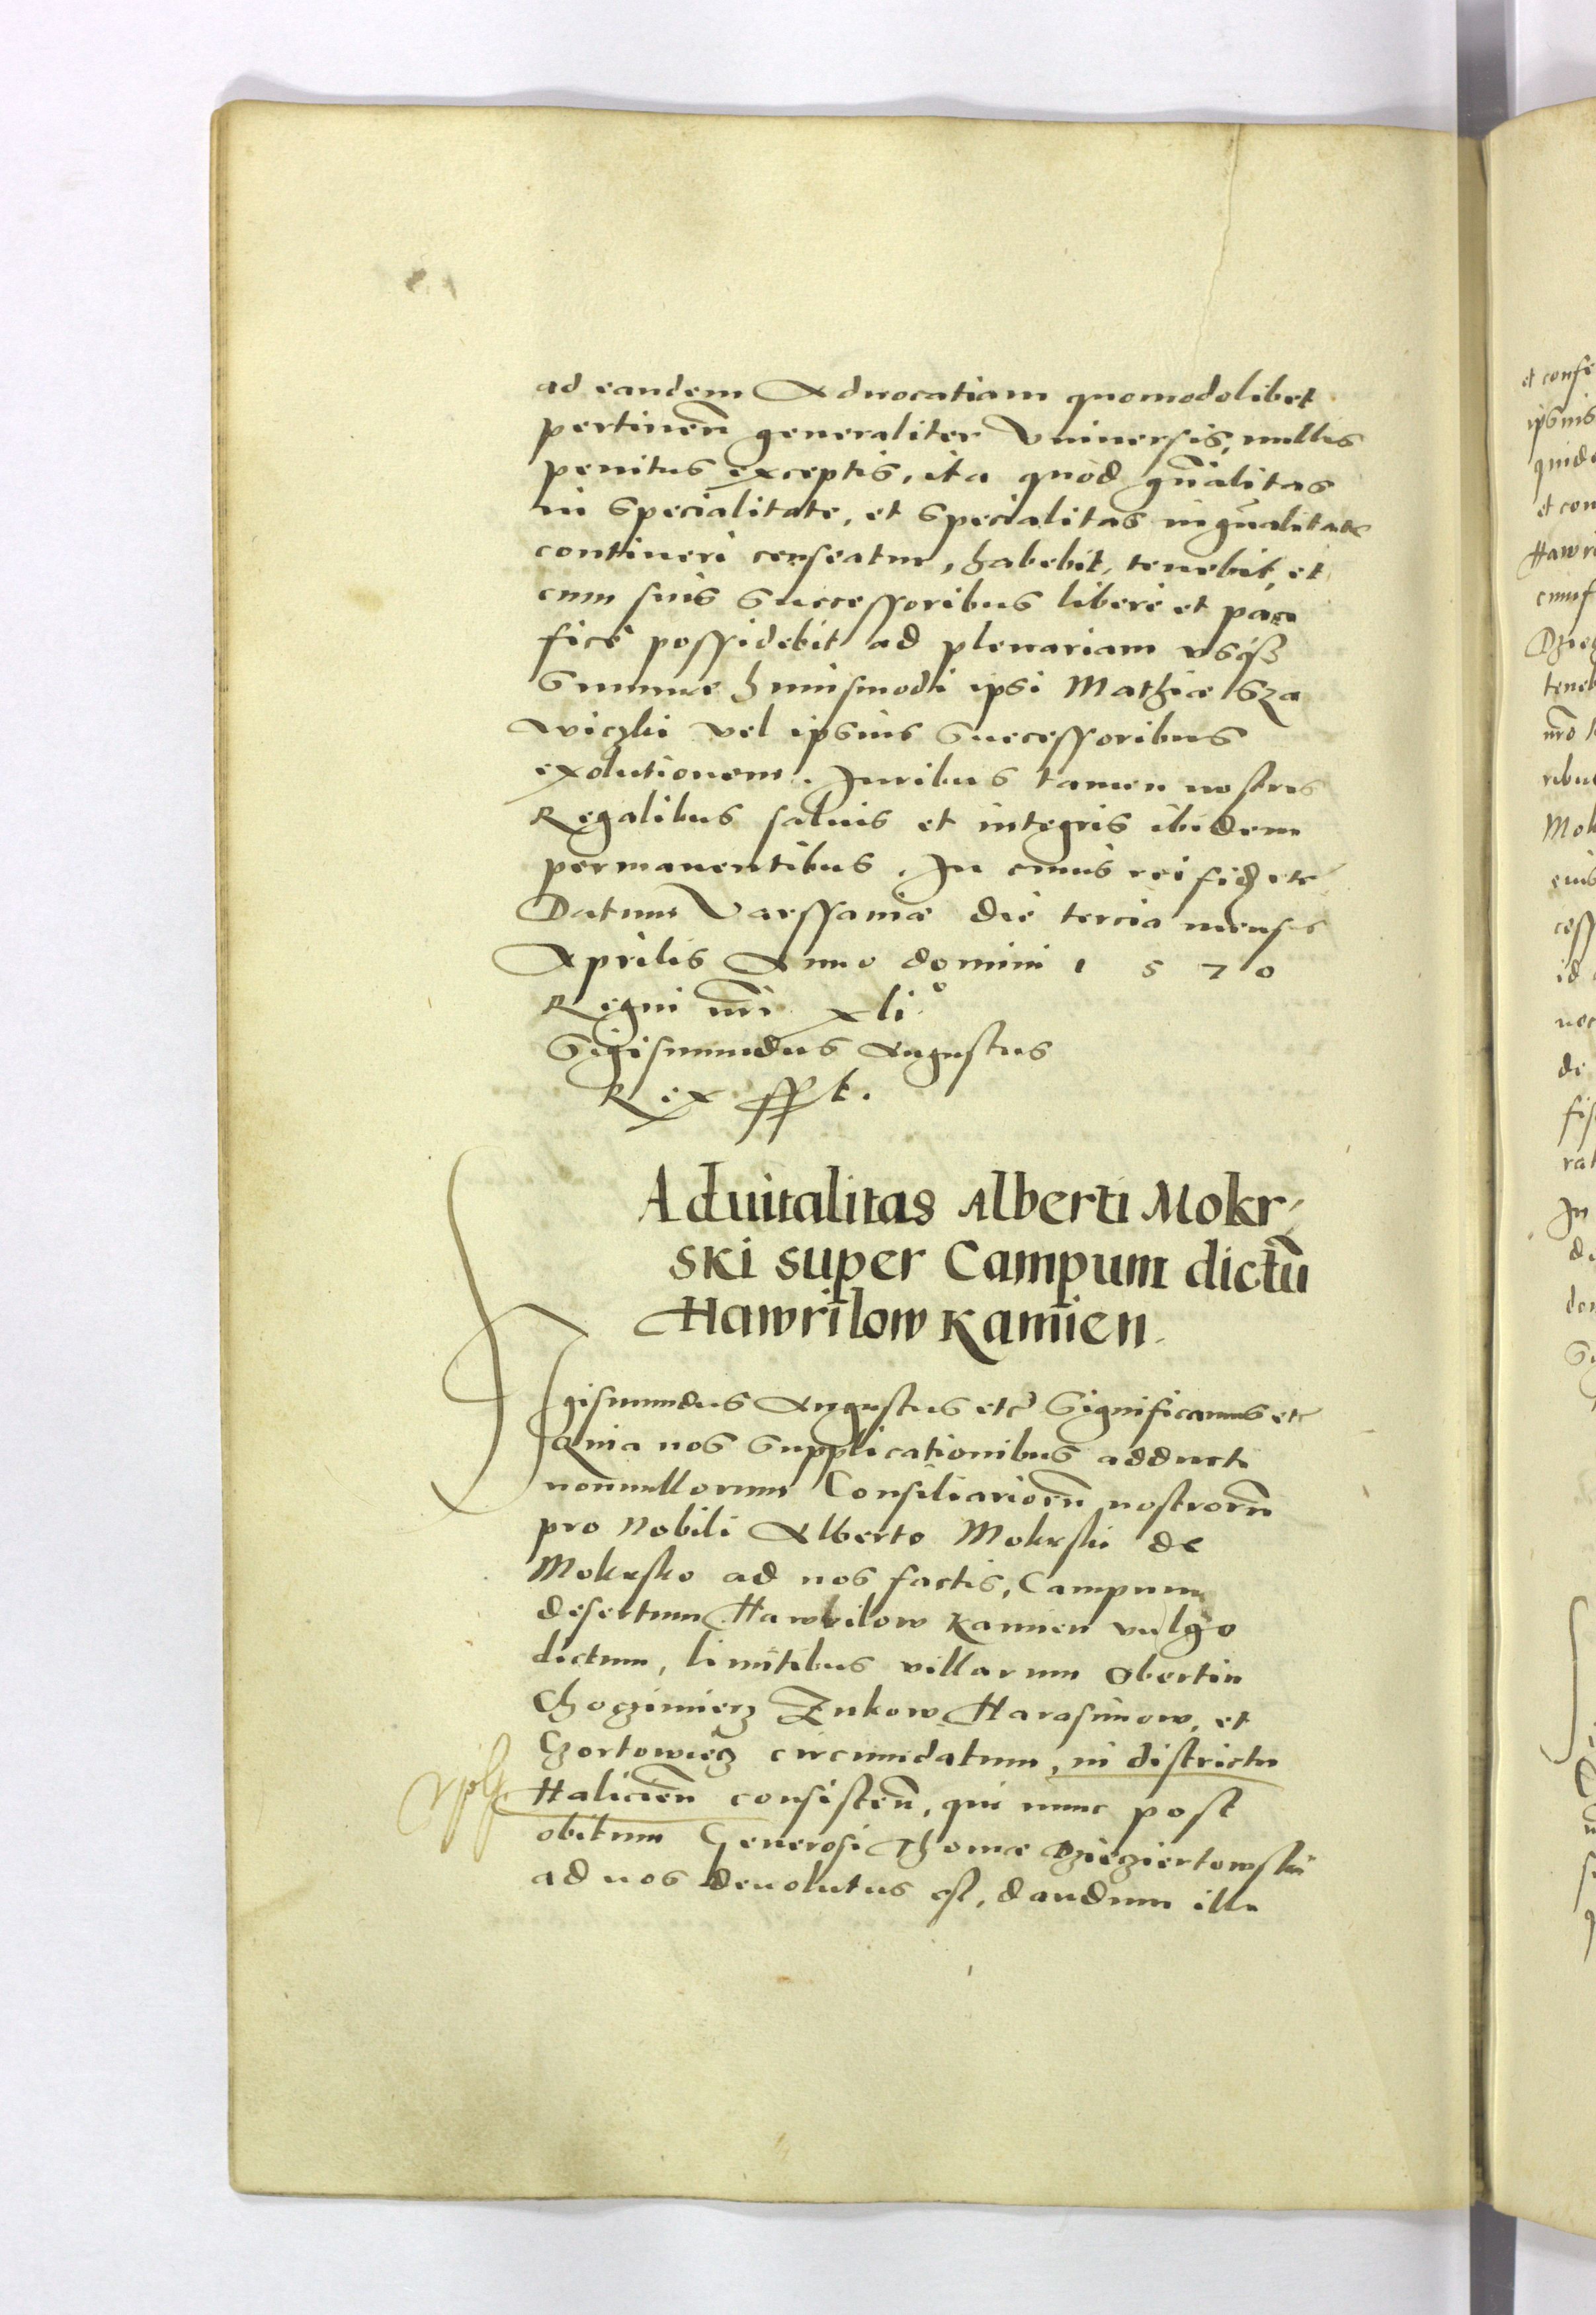 ad eandem Aduocatiam quomodolibet
pertinen̄ generaliter Vniuersis, nullis
penitus exceptis, ita quòd gn̄alitas
in specialitate, et specialitas in gn̄alitate
contineri censeatur, habebit, tenebit, et
cum suis Successoribus liberè et paci
ficè possidebit ad plenariam vsq3
Summæ huiusmodi ipsi Mathiæ Sza
wiczki vel ipsius Successoribus
exolutionem. Iuribus tamen nostris
Regalibus saluis et integris ibidem
permanentibus. In cuius rei fid etc
Datum Varssauiæ die tercia mensis
Aprilis Anno domini 1 5 7 0
Regni nr̄i xli°
Sigismundus Augustus
Rex sspt.
Aduitalitas Alberti Mokr-
ski super Campum dictū
Hawrilow Kamien.
Sigismundus Augustus etc Significamus etc
Quia nos Supplicationibus adducti
nonnullorum Consiliarioru̅ nostroru̅
pro Nobili Alberto Mokrski de
Mokrsko ad nos factis, Campum
desertum Hawrilow Kamien vulgo
dictum, limitibus villarum Obertin
Choczimierz Zukow Harasimow, et
Czortowiecz circumdatum, in districtu
Halicien̄ consisten̄, qui nunc post
obitum Generosi Thomæ Dzieziertowski
ad nos deuolutus est, dandum illi